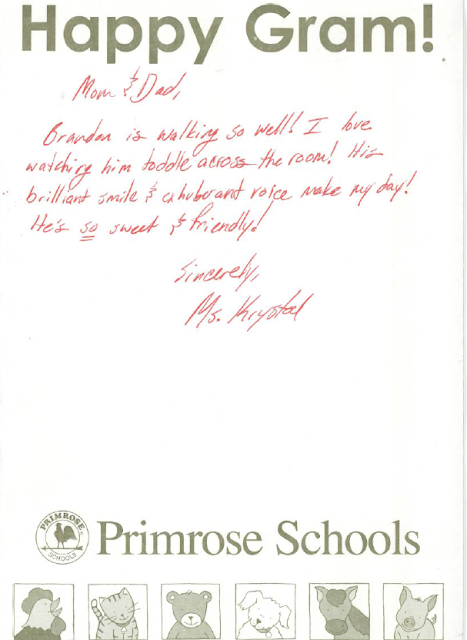 Happy Gram!
Mom & Dad,
Brandon is walking so well! I love
watching him toddle across the room! His
brilliant smile & exhuberant voice make my day!
He's so sweet & friendly!
Sincerely,
Ms. Krystal
PRIMROSE
SCHOOLS
Primrose Schools